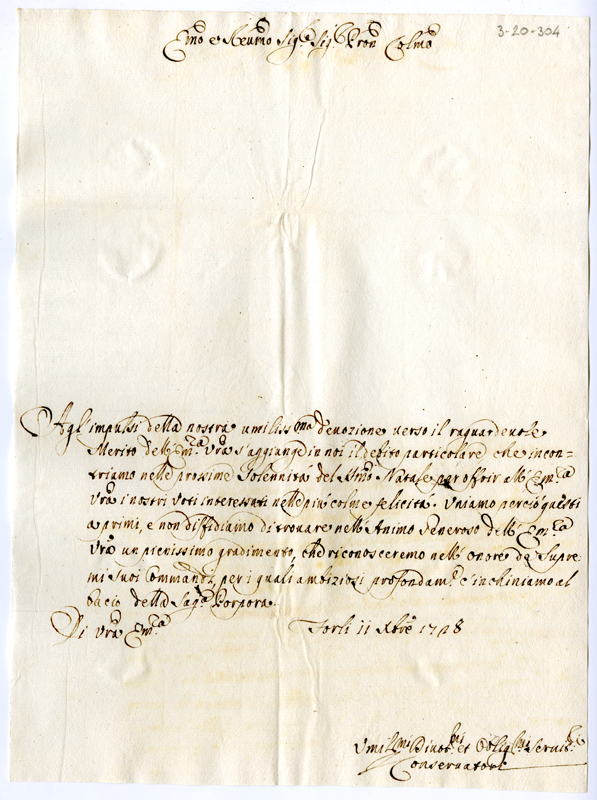 3-20-304
Emo e Reumo Sigre Sig Pron Colmo
Agl'impulsi della nostra umilissma devozione verso il raguardevole
Merito dell'Emza Vra s'aggiunge in noi il debito particolare che incon-
triamo nelle prossime Solennità del Smo Natale per offrir all'Emza
Vra i nostri Voti interessati nelle più colme felicità. Uniamo perciò questi
a primi, e non diffidiamo di trovare nell'Animo Generoso dell'Emza
Vra un pienissimo gradimento, che riconosceremo nell'onore de Supre-
mi suoi Commandi, per i quali ambiziosi profondamte c'inchiniamo al
bacio della Sagra Porpora.
Di Vra Emza Forlì 11 Xbre 1728
Umilmi Divotmi et Obligmi Servitri
Conservatori